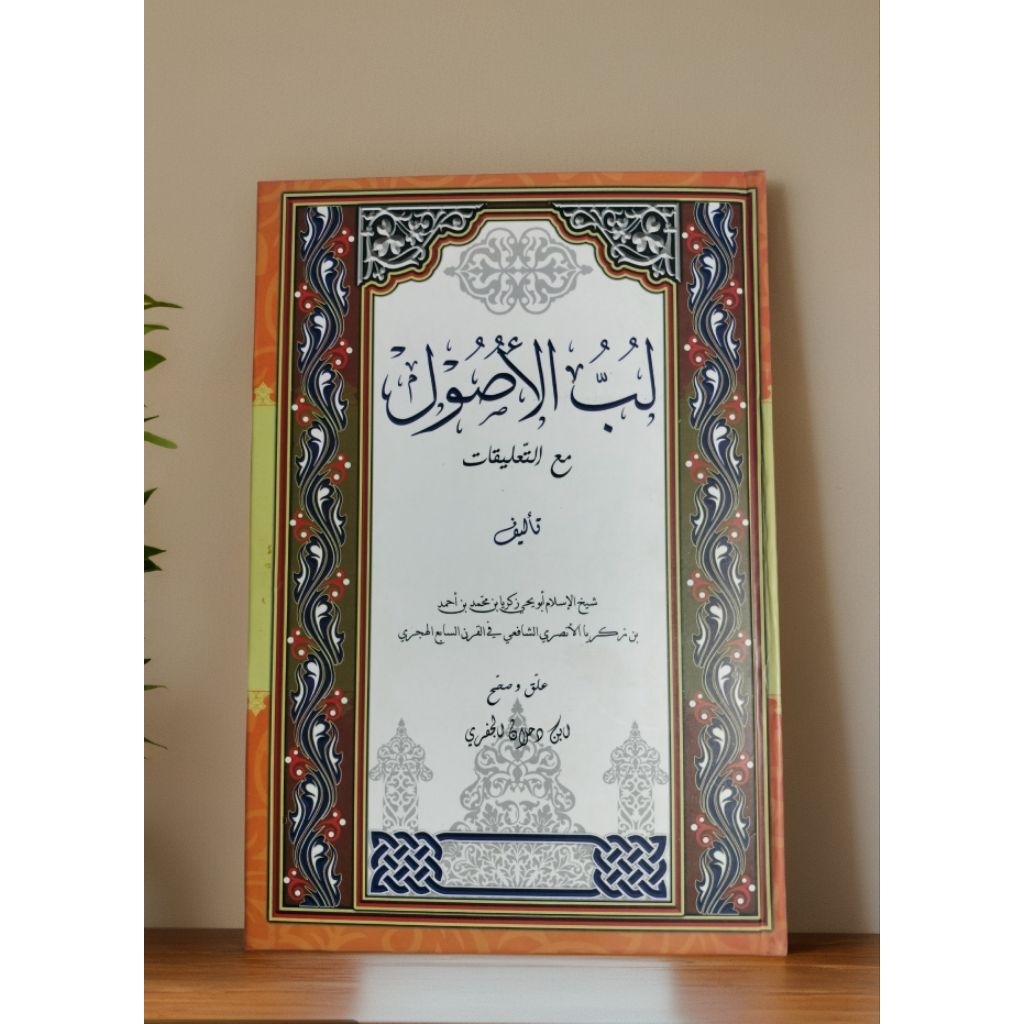 لُبُّ الأُصُوْل
مع التعليقات
تأليف
شيخ الإسلام أبو يحي زكريا بن محمد بن أحمد
بن زكريا الأنصري الشافعي في القرن السابع الهجري
علق و صحح
ابن دحلان الجفري